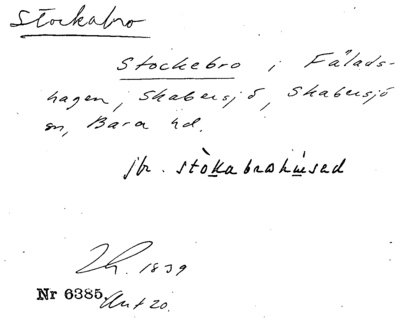 Stockabro
Stockebro i Fälads-
hagen, Skabersjö, Skabersjö
sn, Bara hd.
jfr. stòkabrohused
1839
Nr 6385.
Akt 20.